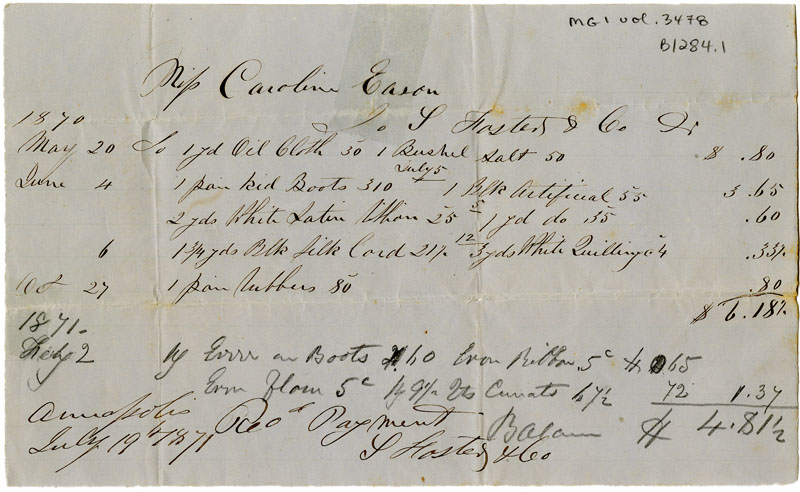 MG1 vol. 3478
B1284.1
Miss Caroline Eason
1870 To S Foster & Co Dr
May 20 To 1 yd Oil Cloth 30 1 Bushel Salt 50 $ .80
July 5
June 4 1 pair Kid Boots 310 1 Blk Artificial 55 3.65
5
2 yds White Satin Ribbon 25 1 yd do .35 .60
12
6 1 3/4 yds Blk Silk Cord 21 3 yds White Quilling 4 .33½
Oct 27 1 pair Rubbers 80 .80
$ 6.18½
1871.
Feby 2 By Error on Boots 60 Error Ribbon 5c $ 65
Error 5c By 9½ lbs 7½ 72 1.37
Balance $ 4.81½
Annapolis Recd Payment
July 19th 1871 S Foster & Co